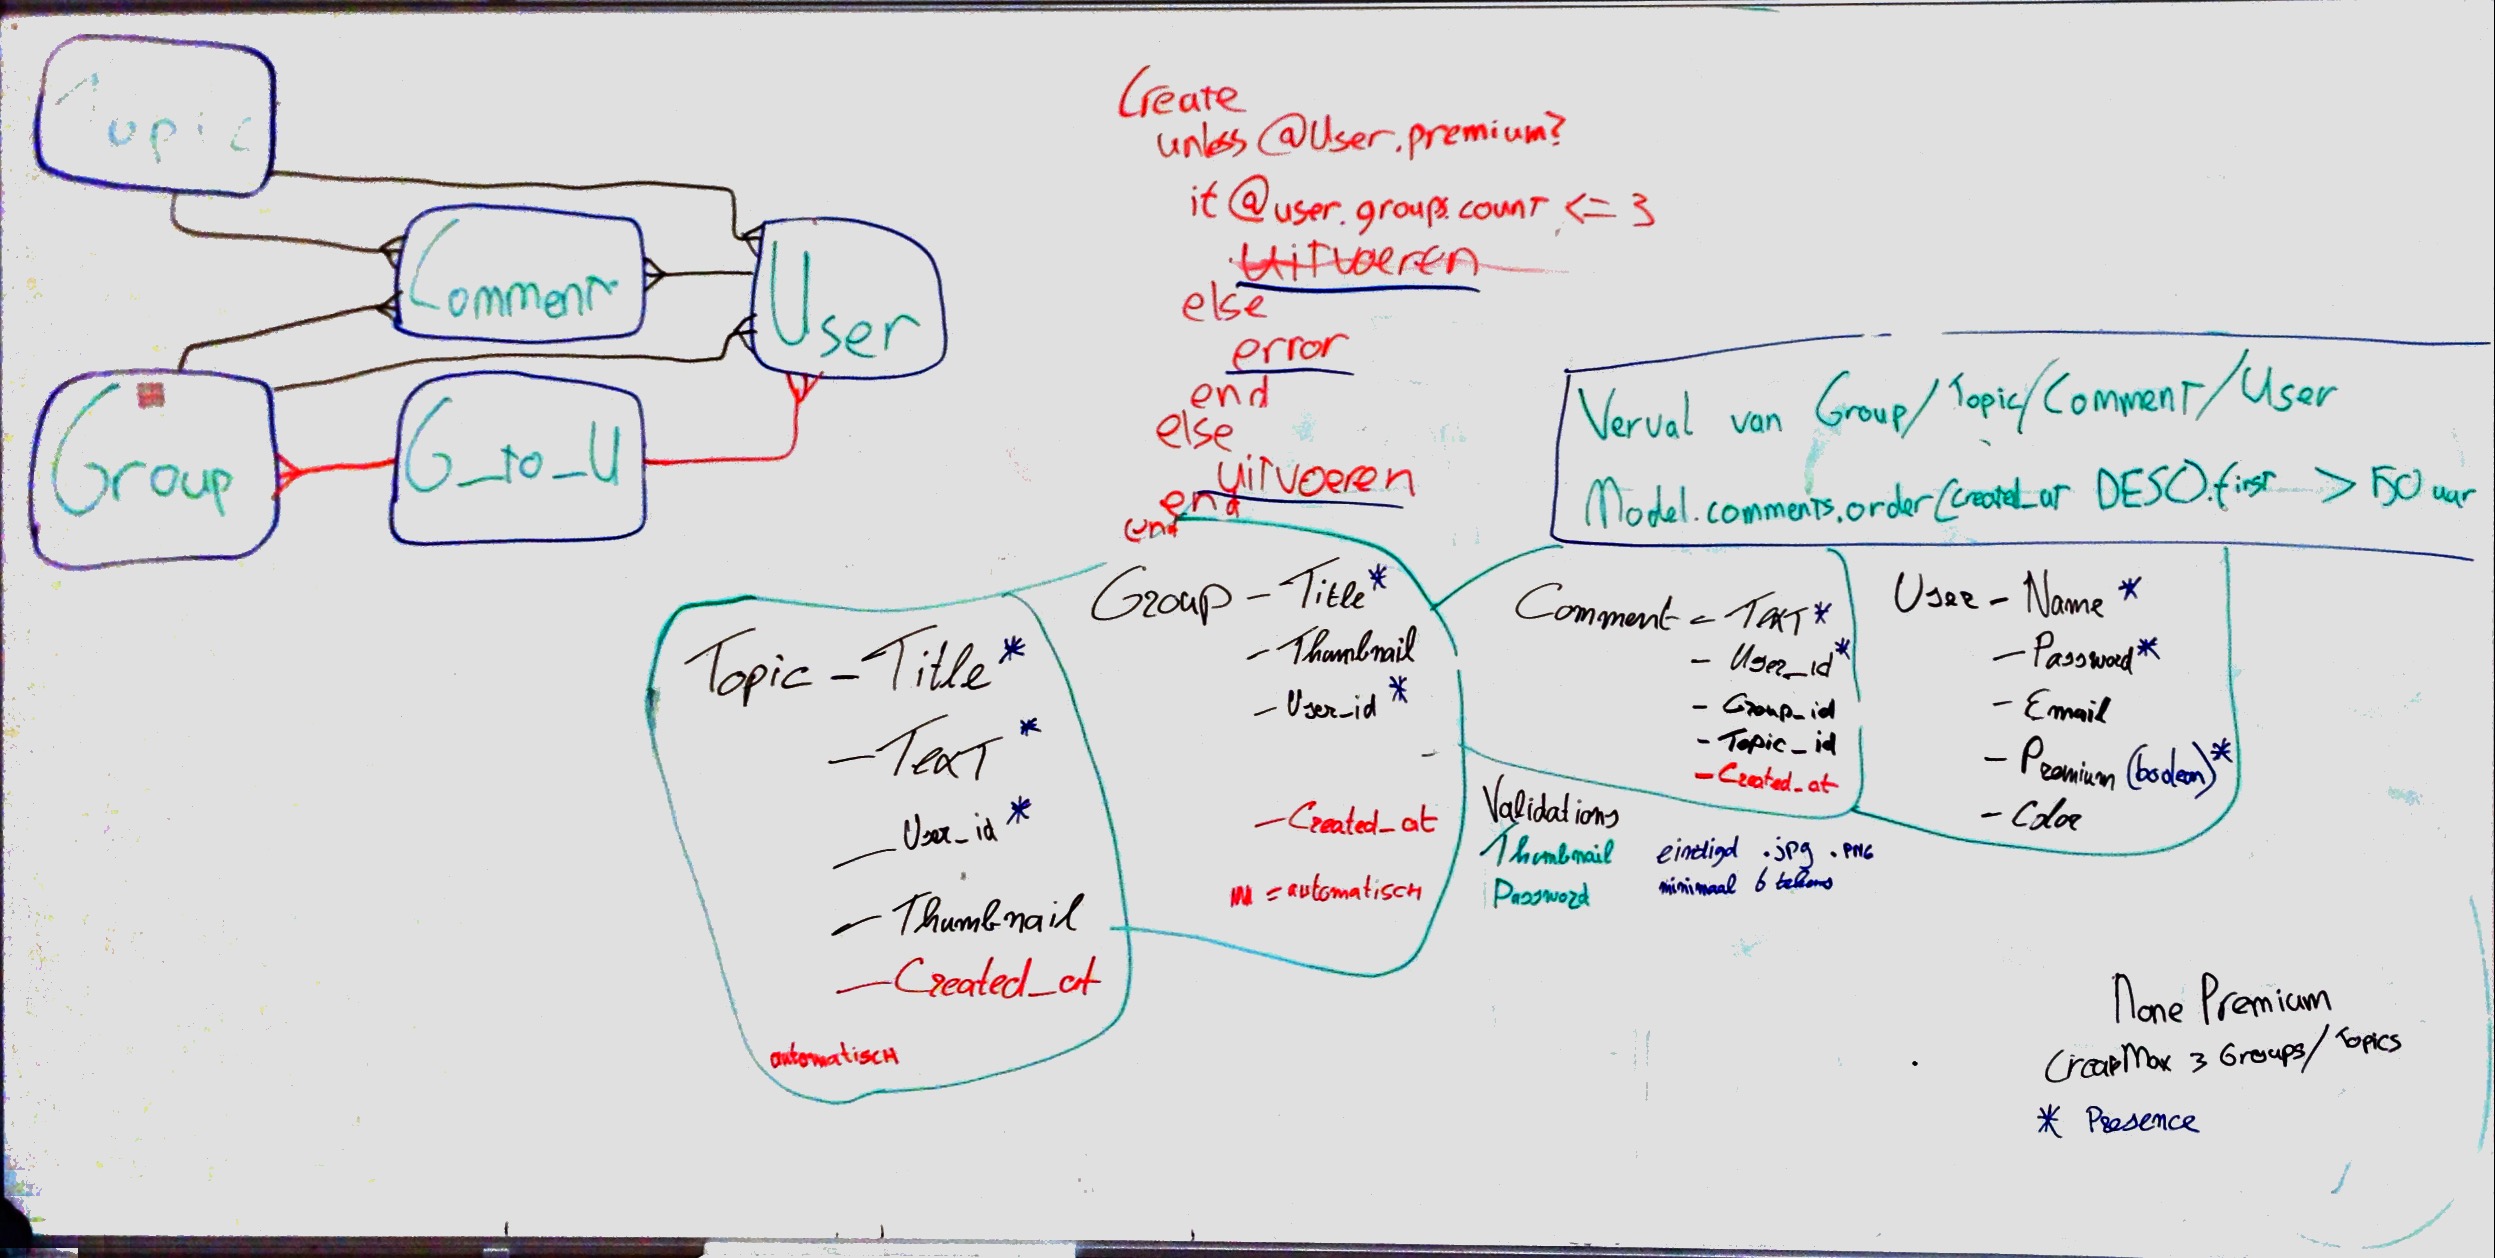 Topic
Comment
User
Group
G_to_U
Create
unless @User.premium?
if @user.groups.count <= 3
uitvoeren
else
error
end
else
uitvoeren
end
end
Verval van Group/Topic/Comment/User
Model.comments.order(created_at DESC).first > 50 uur
Topic - Title *
- Text *
- User_id *
- Thumbnail
- Created_at
automatisch
Group - Title *
- Thumbnail
- User_id *
-
- Created_at
= automatisch
Comment - Text *
- User_id *
- Group_id
- Topic_id
- Created_at
User - Name *
- Password *
- Email
- Premium (boolean) *
- Color
Validations
Thumbnail eindigd .jpg .PNG
Password minimaal 6 tekens
None Premium
Max 3 Groups/Topics
* Presence